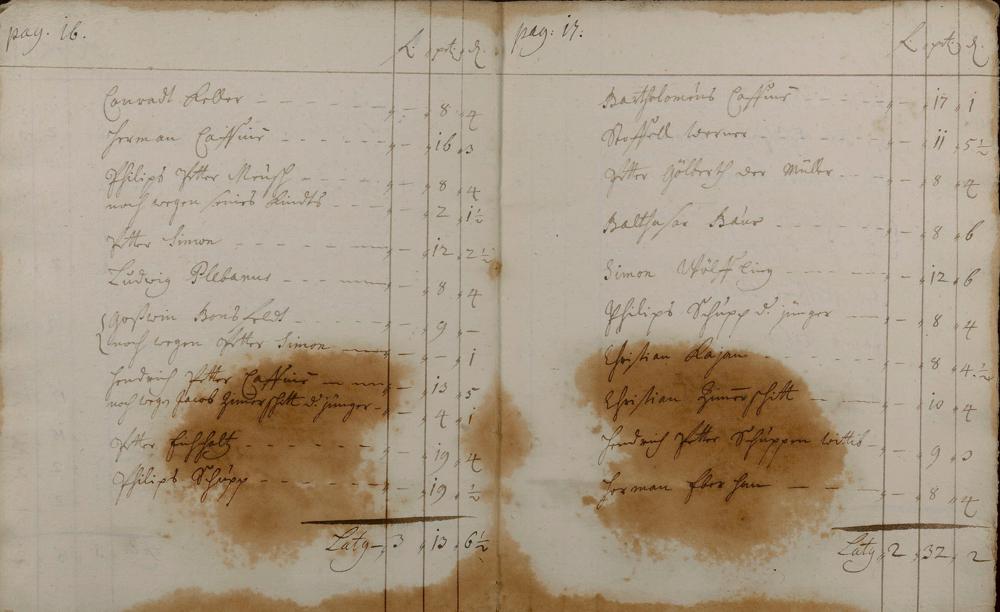 pag. 16.
Conradt Keller - - - " - 8 " 4
Herman Cassing - - - " - 16 " 3
Philips Petter Mensch - - " - 8 " 4
noch wegen seines Kindts - - " - 2 " 1½
Petter Simon - - - " - 12 " 2½
Ludwig Plebanus - - - " - 8 " 4
Goßwin Bonsfeldt - - " - 9 " -
noch wegen Petter Simon - " - - " 1
Hendrich Petter Cassing - " - 13 " 5
noch wegen Jacob Zimerschitt d. jünger - " - 4 " 1
Petter Eichholtz - - - " - 19 " 4
Philips Schupp - - - " - 19 " ½
Latg - 3 " 13 " 6½
pag: 17.
Bartholomeus Cassing - - " - 17 " 1
Stoffell Werner - - - " - 11 " 5½
Petter Gölberth der Müller - " - 8 " 4
Balthasar - - - " - 8 " 6
Simon - - - " - 12 " 6
Philips Schupp d. jünger - - " - 8 " 4
Christian - - - " - 8 " 4½
Christian Zimerschitt - " - 10 " 4
Hendrich Petter Schuppen wittib - " - 9 " 3
Herman - - " - 8 " 4
Latg 2 " 32 " 2